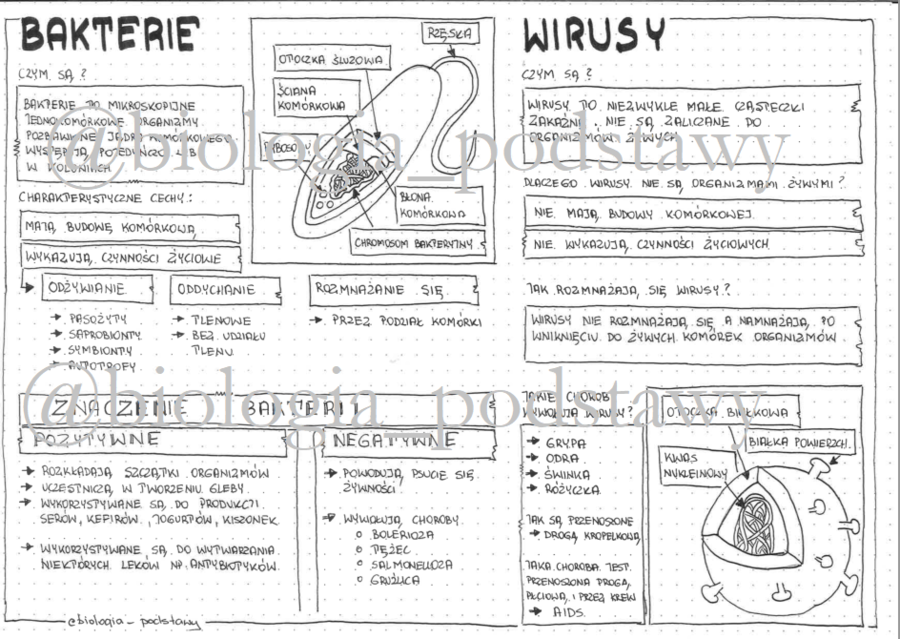 BAKTERIE
CZYM SĄ?
BAKTERIE TO MIKROSKOPIJNE
JEDNOKOMÓRKOWE ORGANIZMY
POZBAWIONE JĄDRA KOMÓRKOWEGO.
WYSTĘPUJĄ POJEDYNCZO LUB
W KOLONIACH
CHARAKTERYSTYCZNE CECHY:
MAJĄ BUDOWĘ KOMÓRKOWĄ
WYKAZUJĄ CZYNNOŚCI ŻYCIOWE
RZĘSKA
OTOCZKA ŚLUZOWA
ŚCIANA
KOMÓRKOWA
RYBOSOMY
BŁONA
KOMÓRKOWA
CHROMOSOM BAKTERYJNY
ODŻYWIANIE
PASOŻYTY
SAPROBIONTY
SYMBIONTY
AUTOTROFY
ODDYCHANIE
TLENOWE
BEZ UDZIAŁU
TLENU
ROZMNAŻANIE SIĘ
PRZEZ PODZIAŁ KOMÓRKI
ZNACZENIE BAKTERII
POZYTYWNE
ROZKŁADAJĄ SZCZĄTKI ORGANIZMÓW
UCZESTNICZĄ W TWORZENIU GLEBY
WYKORZYSTYWANE SĄ DO PRODUKCJI
SERÓW, KEFIRÓW, JOGURTÓW, KISZONEK
WYKORZYSTYWANE SĄ DO WYTWARZANIA
NIEKTÓRYCH LEKÓW NP. ANTYBIOTYKÓW.
NEGATYWNE
POWODUJĄ PSUCIE SIĘ
ŻYWNOŚCI
WYWOŁUJĄ CHOROBY
BOLERIOZA
TĘŻEC
SALMONELLOZA
GRUŹLICA
@biologia_podstawy
WIRUSY
CZYM SĄ?
WIRUSY TO NIEZWYKLE MAŁE CZĄSTECZKI
ZAKAŹNE. NIE SĄ ZALICZANE DO
ORGANIZMÓW ŻYWYCH
DLACZEGO WIRUSY NIE SĄ ORGANIZMAMI ŻYWYMI?
NIE MAJĄ BUDOWY KOMÓRKOWEJ
NIE WYKAZUJĄ CZYNNOŚCI ŻYCIOWYCH
JAK ROZMNAŻAJĄ SIĘ WIRUSY?
WIRUSY NIE ROZMNAŻAJĄ SIĘ A NAMNAŻAJĄ PO
WNIKNIĘCIU DO ŻYWYCH KOMÓREK ORGANIZMÓW
JAKIE CHOROBY
WYWOŁUJĄ WIRUSY?
GRYPA
ODRA
ŚWINKA
RÓŻYCZKA
JAK SĄ PRZENOSZONE
DROGĄ KROPELKOWĄ
JAKA CHOROBA JEST
PRZENOSZONA DROGĄ
PŁCIOWĄ I PRZEZ KREW
AIDS.
OTOCZKA BIAŁKOWA
BIAŁKA POWIERZCH.
KWAS
NUKLEINOWY
@biologia_podstawy
@biologia_podstawy